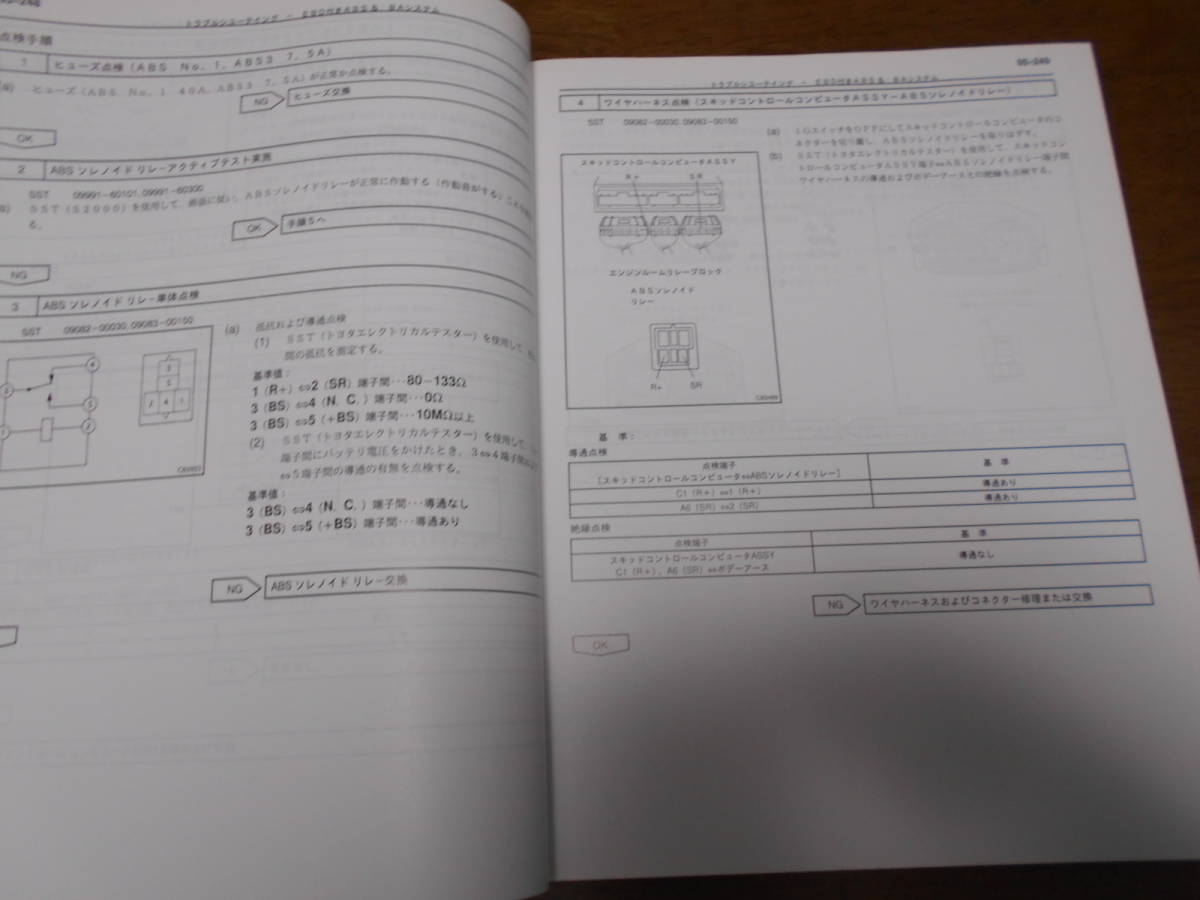 トラブルシューティング － EBD付きABS & BAシステム
点検手順
1 ヒューズ点検（ABS No. 1, ABS3 7. 5A）
ヒューズ（ABS No. 1 40A, ABS3 7. 5A）が正常か点検する。
NG ヒューズ交換
OK
2 ABS ソレノイド リレーアクティブテスト実施
SST 09991-60101, 09991-60300
SST（S2000）を使用して、画面に従い、ABSソレノイドリレーが正常に作動する（作動音がする）
る。
OK 手順5へ
NG
3 ABS ソレノイド リレー単体点検
SST 09082-00030, 09083-00150
(a) 抵抗および導通点検
(1) SST（トヨタエレクトリカルテスター）を使用して、
間の抵抗を測定する。
基準値：
1（R+）⇔2（SR）端子間･･･80－133Ω
3（BS）⇔4（N. C.）端子間･･･0Ω
3（BS）⇔5（+BS）端子間･･･10MΩ以上
(2) SST（トヨタエレクトリカルテスター）を使用して、
端子間にバッテリ電圧をかけたとき、3⇔4端子間
⇔5端子間の導通の有無を点検する。
基準値：
3（BS）⇔4（N. C.）端子間･･･導通なし
3（BS）⇔5（+BS）端子間･･･導通あり
NG ABS ソレノイド リレー交換
05-249
トラブルシューティング － EBD付きABS & BAシステム
4 ワイヤハーネス点検（スキッドコントロールコンピュータASSY－ABSソレノイドリレー）
SST 09082-00030, 09083-00150
(a) IGスイッチをOFFにしてスキッドコントロールコンピュータのコ
ネクターを切り離し、ABSソレノイドリレーを取りはずす。
(b) SST（トヨタエレクトリカルテスター）を使用して、スキッドコン
トロールコンピュータASSY端子⇔ABSソレノイドリレー端子間
ワイヤハーネスの導通およびボデーアースとの絶縁を点検する。
スキッドコントロールコンピュータASSY
R+ SR
エンジンルームリレーブロック
ABSソレノイド
リレー
R+ SR
基 準：
導通点検
点検端子
［スキッドコントロールコンピュータ⇔ABSソレノイドリレー］ 基 準
C1（R+）⇔1（R+） 導通あり
A6（SR）⇔2（SR） 導通あり
絶縁点検
点検端子 基 準
スキッドコントロールコンピュータASSY
C1（R+），A6（SR）⇔ボデーアース 導通なし
NG ワイヤハーネスおよびコネクター修理または交換
OK